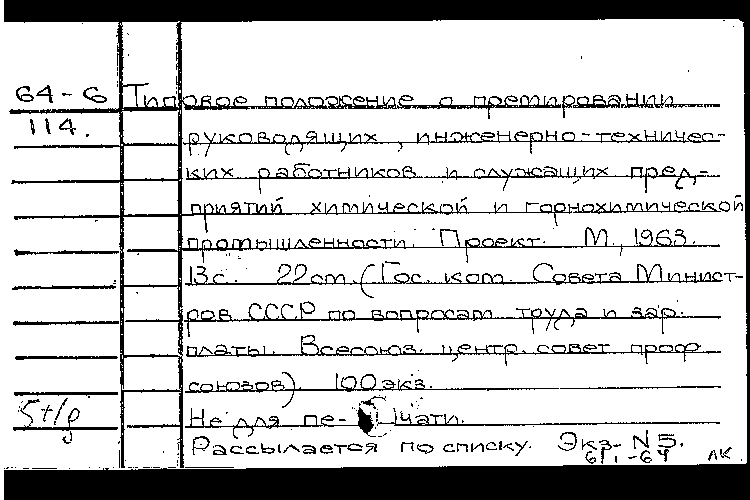 64-6 Типовое положение о премировании
114. руководящих, инженерно-техничес-
ких работников и служащих пред-
приятий химической и горнохимической
промышленности. Проект. М., 1963.
13с. 22см. (Гос. ком. Совета Минист-
ров СССР по вопросам труда и зар.
платы. Всесоюз. центр. совет проф
союзов) 100 экз.
Не для пе- чати.
Рассылается по списку. Экз. N 5.
ЛК